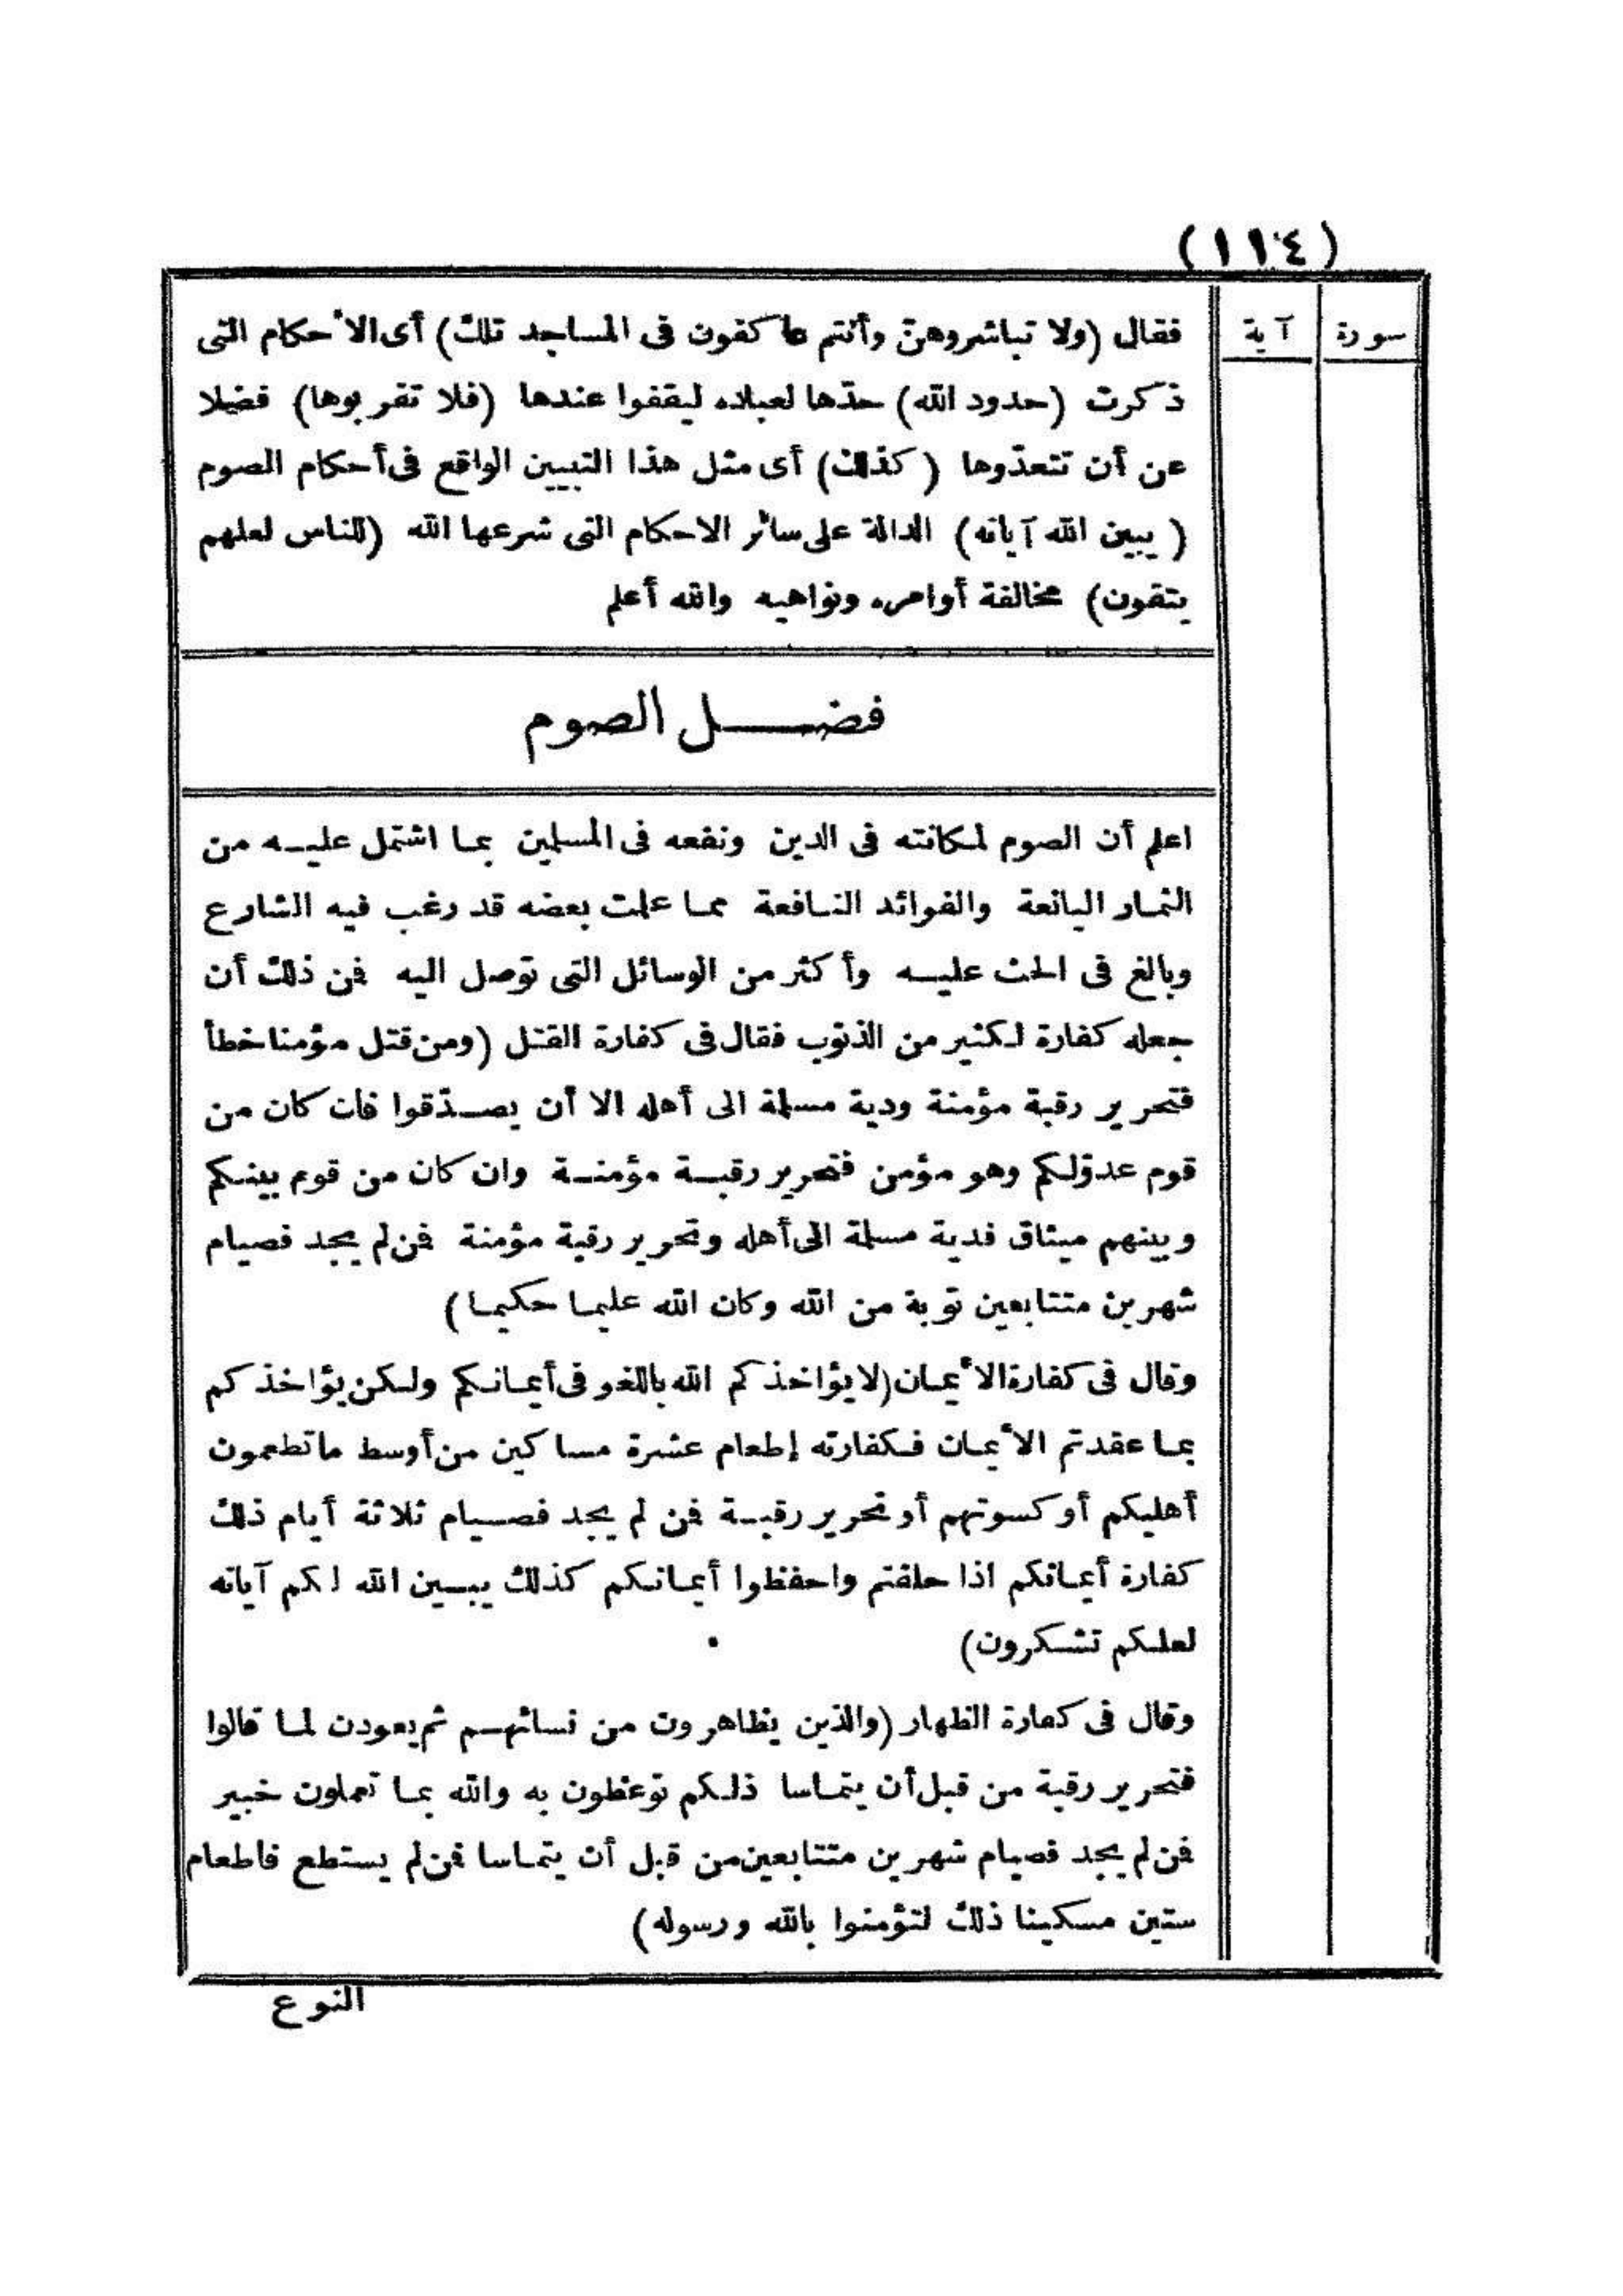 (١١٤)
سورة آية
فقال (ولا تباشروهنّ وأنتم عاكفون فى المساجد تلك) أى الأحكام التى
ذكرت (حدود الله) حدّها لعباده ليقفوا عندها (فلا تقربوها) فضلا
عن أن تتعدّوها (كذلك) أى مثل هذا التبيين الواقع فى أحكام الصوم
(يبين الله آياته) الدالة على سائر الاحكام التى شرعها الله (للناس لعلهم
يتقون) مخالفة أوامره ونواهيه والله أعلم
فضل الصوم
اعلم أن الصوم لمكانته فى الدين ونفعه فى المسلمين بما اشتمل عليه من
الثمار اليانعة والفوائد النافعة مما علمت بعضه قد رغب فيه الشارع
وبالغ فى الحث عليه وأكثر من الوسائل التى توصل اليه فمن ذلك أن
جعله كفارة لكثير من الذنوب فقال فى كفارة القتل (ومن قتل مؤمنا خطأ
فتحرير رقبة مؤمنة ودية مسلمة الى أهله الا أن يصدّقوا فان كان من
قوم عدوّلكم وهو مؤمن فتحرير رقبة مؤمنة وان كان من قوم بينكم
وبينهم ميثاق فدية مسلمة الى أهله وتحرير رقبة مؤمنة فمن لم يجد فصيام
شهرين متتابعين توبة من الله وكان الله عليما حكيما)
وقال فى كفارة الأيمان (لا يؤاخذكم الله باللغو فى أيمانكم ولكن يؤاخذكم
بما عقدتم الأيمان فكفارته إطعام عشرة مساكين من أوسط ما تطعمون
أهليكم أو كسوتهم أو تحرير رقبة فمن لم يجد فصيام ثلاثة أيام ذلك
كفارة أيمانكم اذا حلفتم واحفظوا أيمانكم كذلك يبين الله لكم آياته
لعلكم تشكرون)
وقال فى كفارة الظهار (والذين يظاهرون من نسائهم ثم يعودن لما قالوا
فتحرير رقبة من قبل أن يتماسا ذلكم توعظون به والله بما تعملون خبير
فمن لم يجد فصيام شهرين متتابعين من قبل أن يتماسا فمن لم يستطع فاطعام
ستين مسكينا ذلك لتؤمنوا بالله ورسوله)
النوع